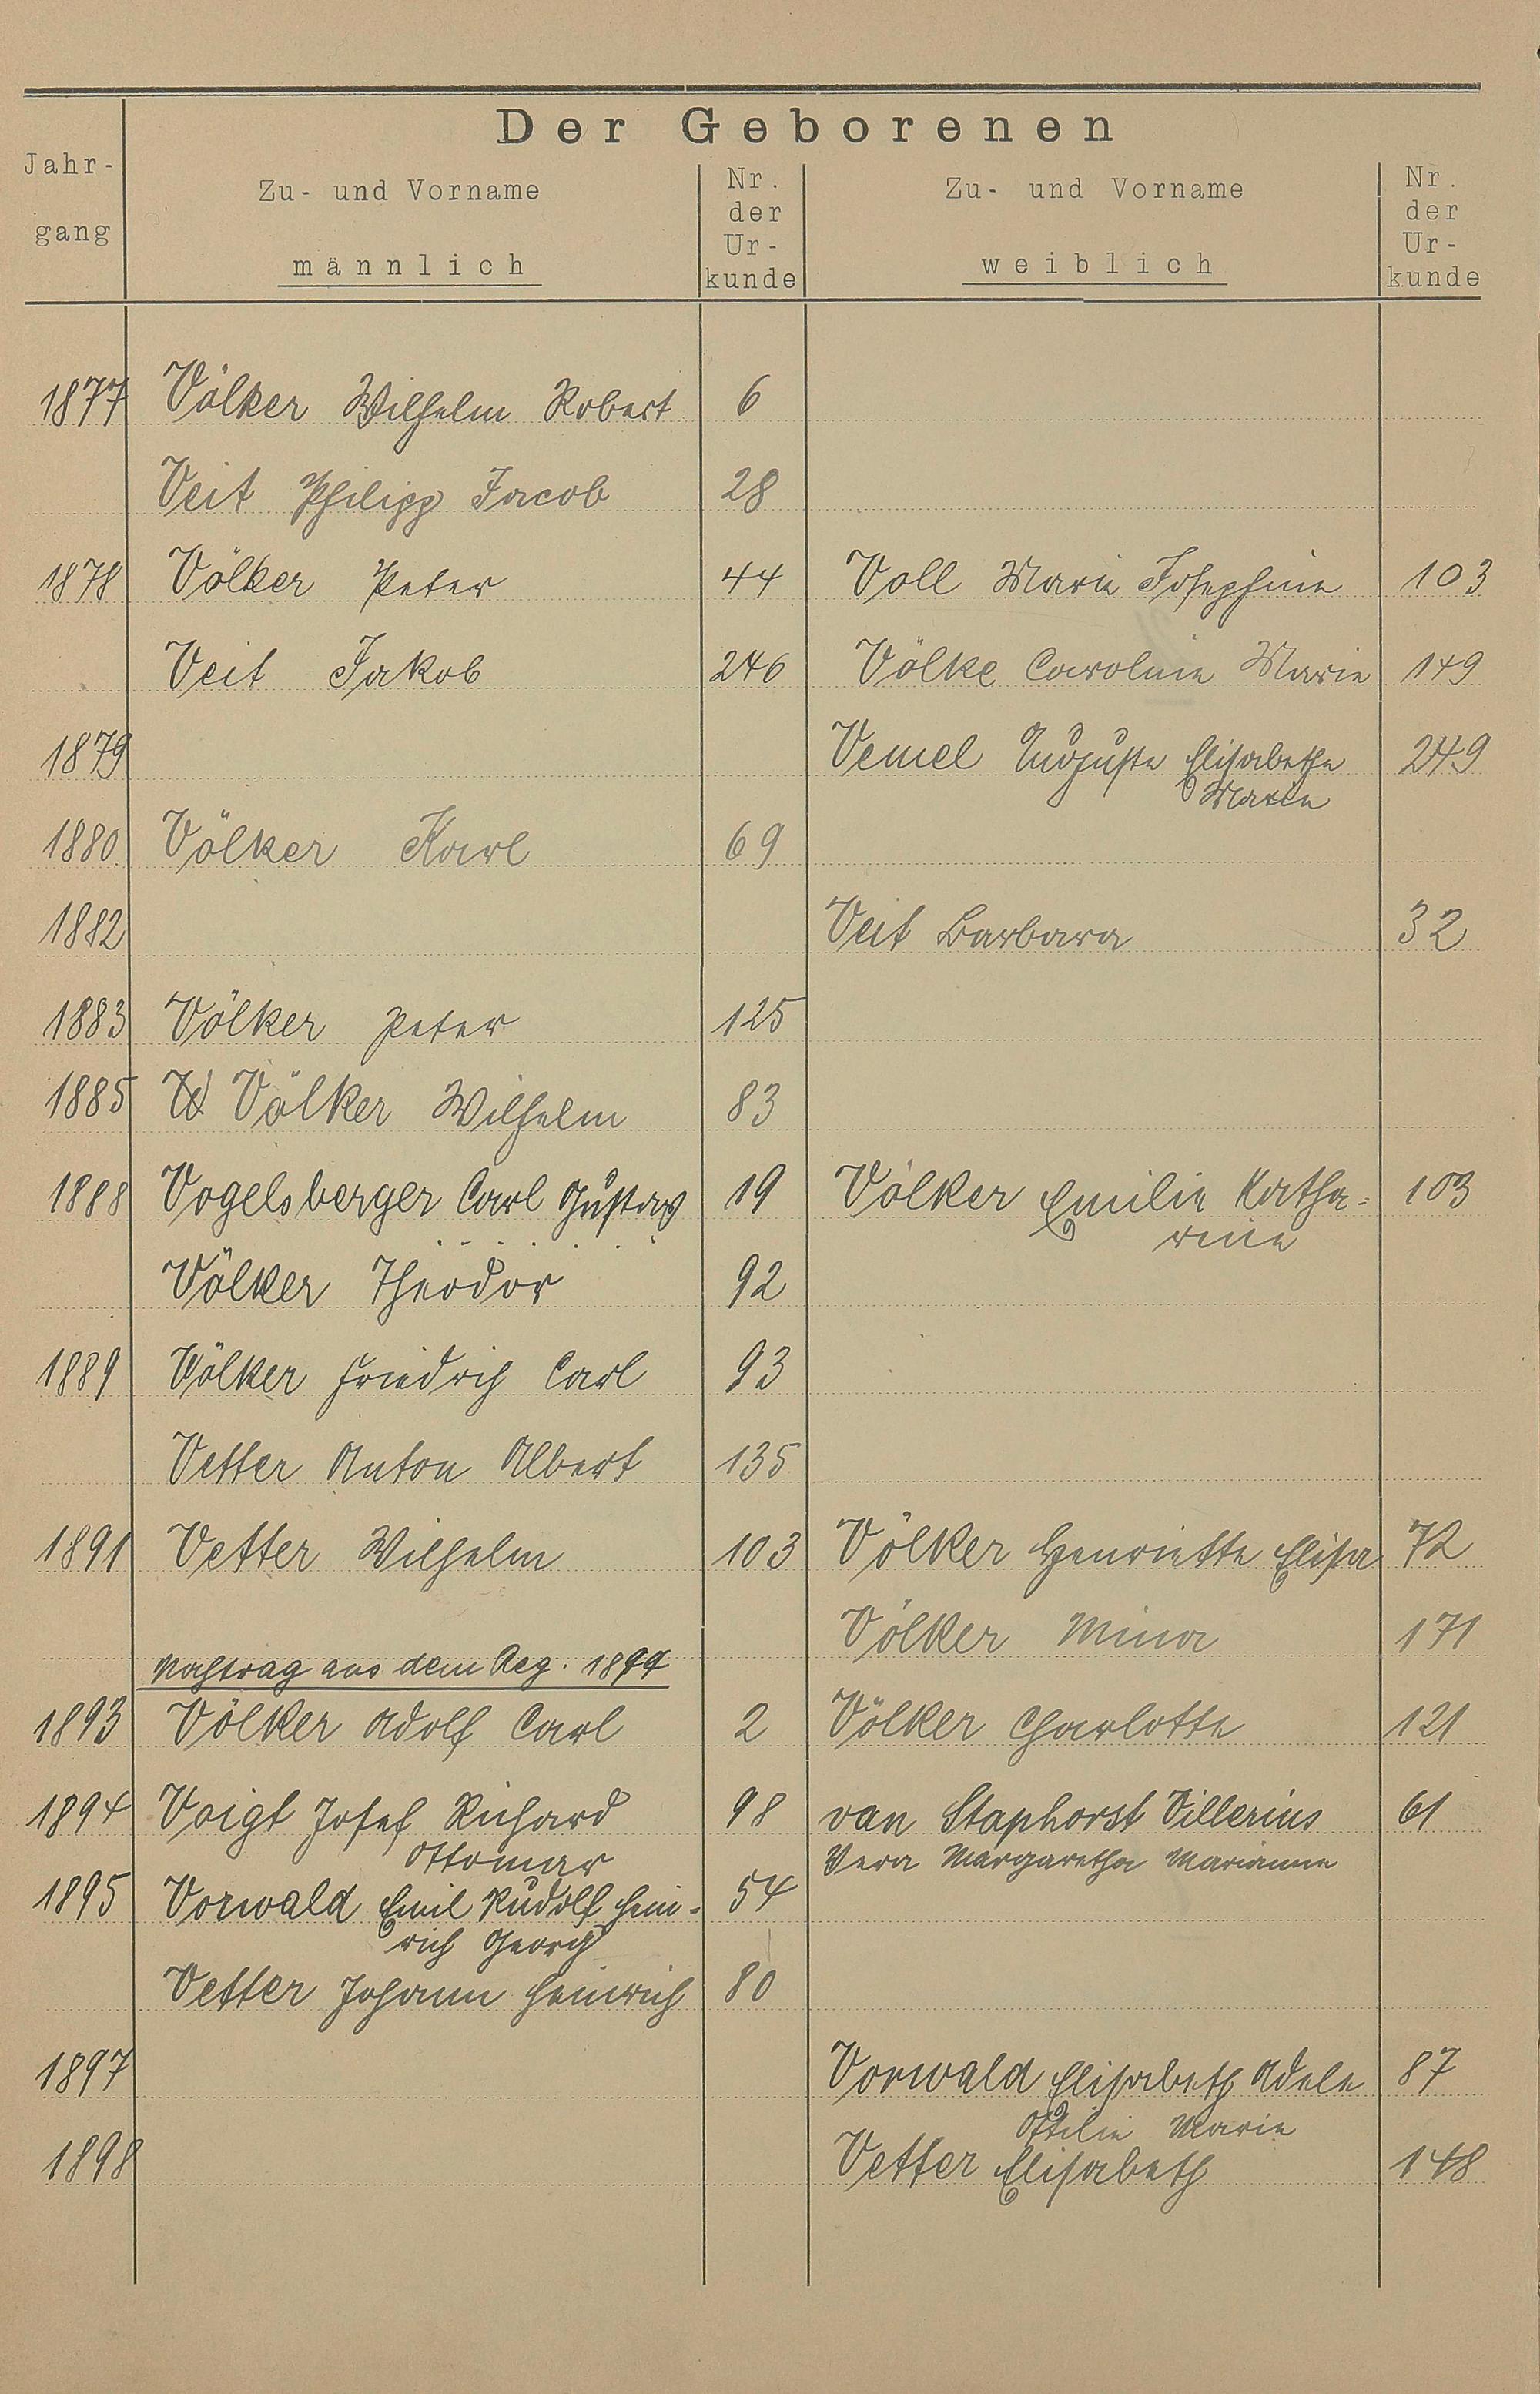 Der Geborenen
Jahr-
gang
Zu- und Vorname
männlich
Nr.
der
Ur-
kunde
Zu- und Vorname
weiblich
Nr.
der
Ur-
kunde
1877 Völker Wilhelm Robert 6
Veit Philipp Jacob 28
1878 Völker Peter 44 Voll Marie Josephine 103
Veit Jakob 246 Völke Caroline Marie 149
1879 Vemel Auguste Elisabetha 249
Marie
1880 Völker Karl 69
1882 Veit Barbara 32
1883 Völker Peter 125
1885 Völker Wilhelm 83
1888 Vogelsberger Carl Gustav 19 Völker Emilie Katha= 103
rine
Völker Theodor 92
1889 Völker Friedrich Carl 93
Vetter Anton Albert 135
1891 Vetter Wilhelm 103 Völker Henriette Elisa 72
Völker Mina 171
Nachtrag aus dem Reg. 1894
1893 Völker Adolf Carl 2 Völker Charlotte 121
1894 Voigt Josef Richard 98 van Staphorst Villerius 61
Ottomar Vera Margaretha Marianne
1895 Vorwald Emil Rudolf Hein- 54
rich Georg
Vetter Johann Heinrich 80
1897 Vorwald Elisabeth Adele 87
Ottilie Marie
1898 Vetter Elisabeth 148